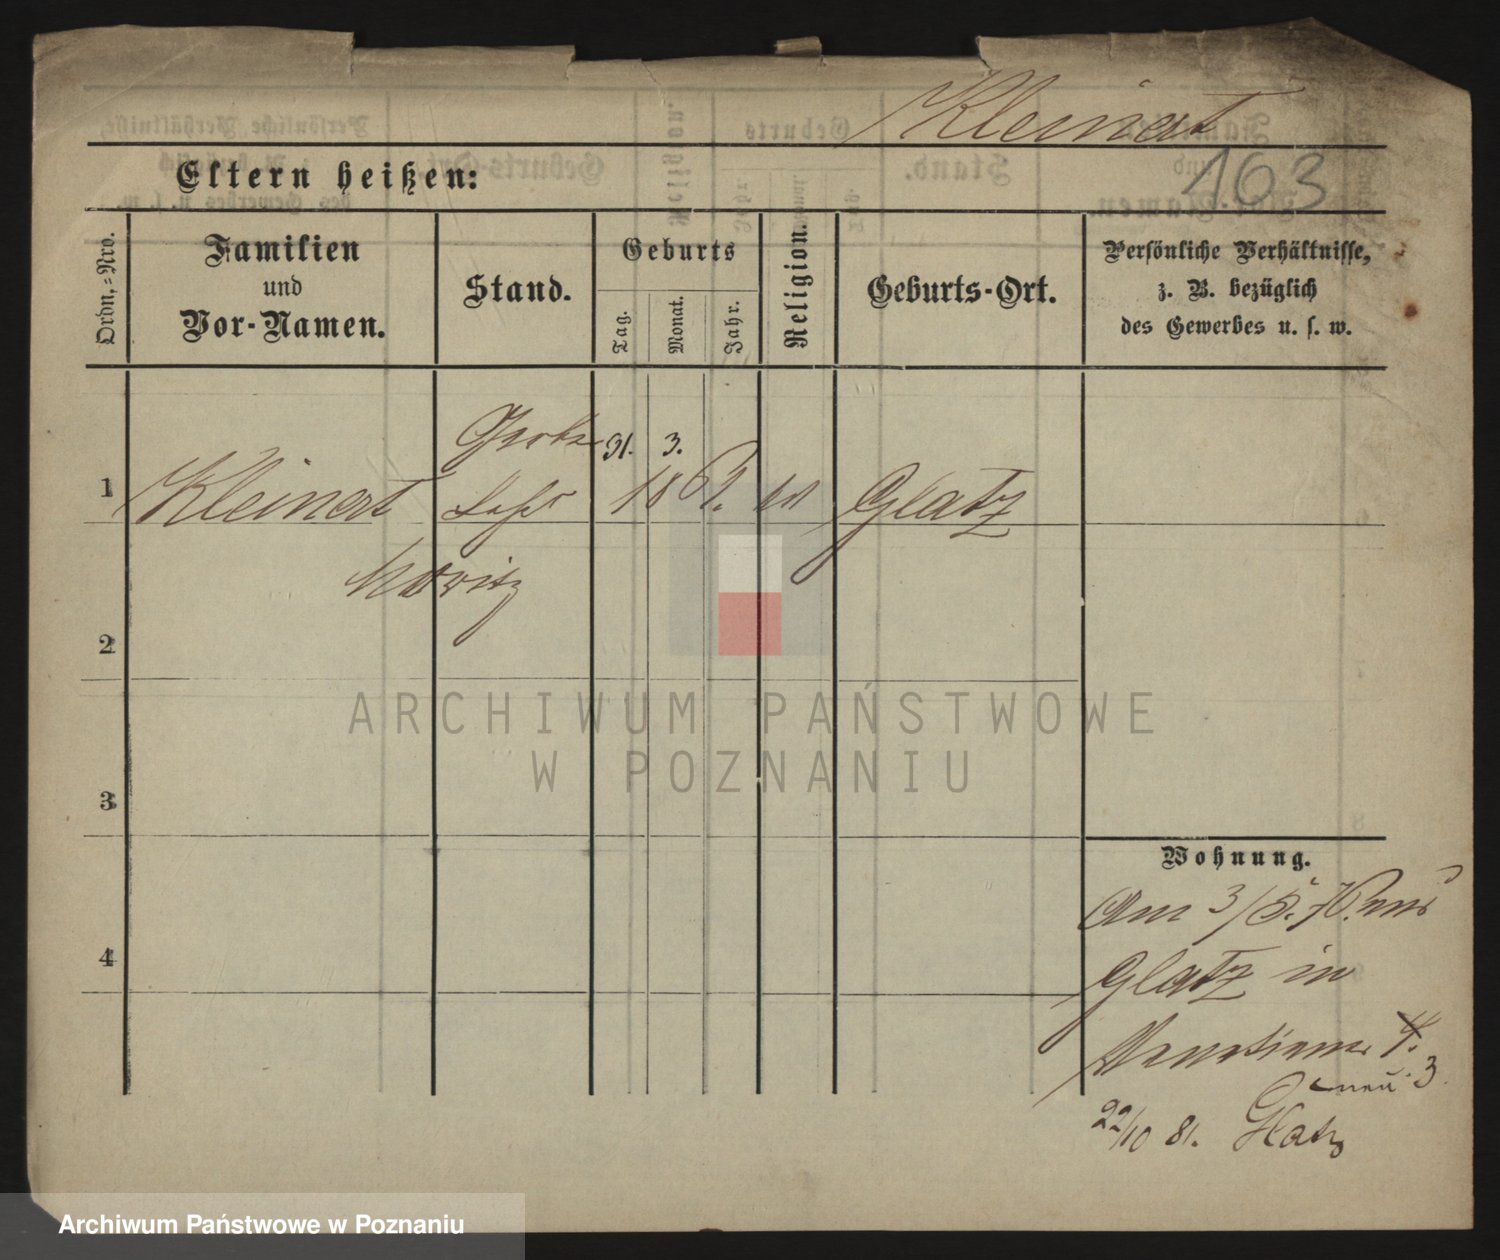 Kleinert
163
Eltern heißen:
Ordn.-Nro.
Familien
und
Vor-Namen.
Stand.
Geburts
Tag.
Monat.
Jahr.
Religion.
Geburts-Ort.
Persönliche Verhältnisse,
z. B. bezüglich
des Gewerbes u. s. w.
31. 3.
1 Kleinert 18 Glatz
Moritz
2
3
4
Wohnung.
Am 3/5. aus
Glatz in
4.
neu 3
22/10 81. Glatz
ARCHIWUM PAŃSTWOWE
W POZNANIU
Archiwum Państwowe w Poznaniu